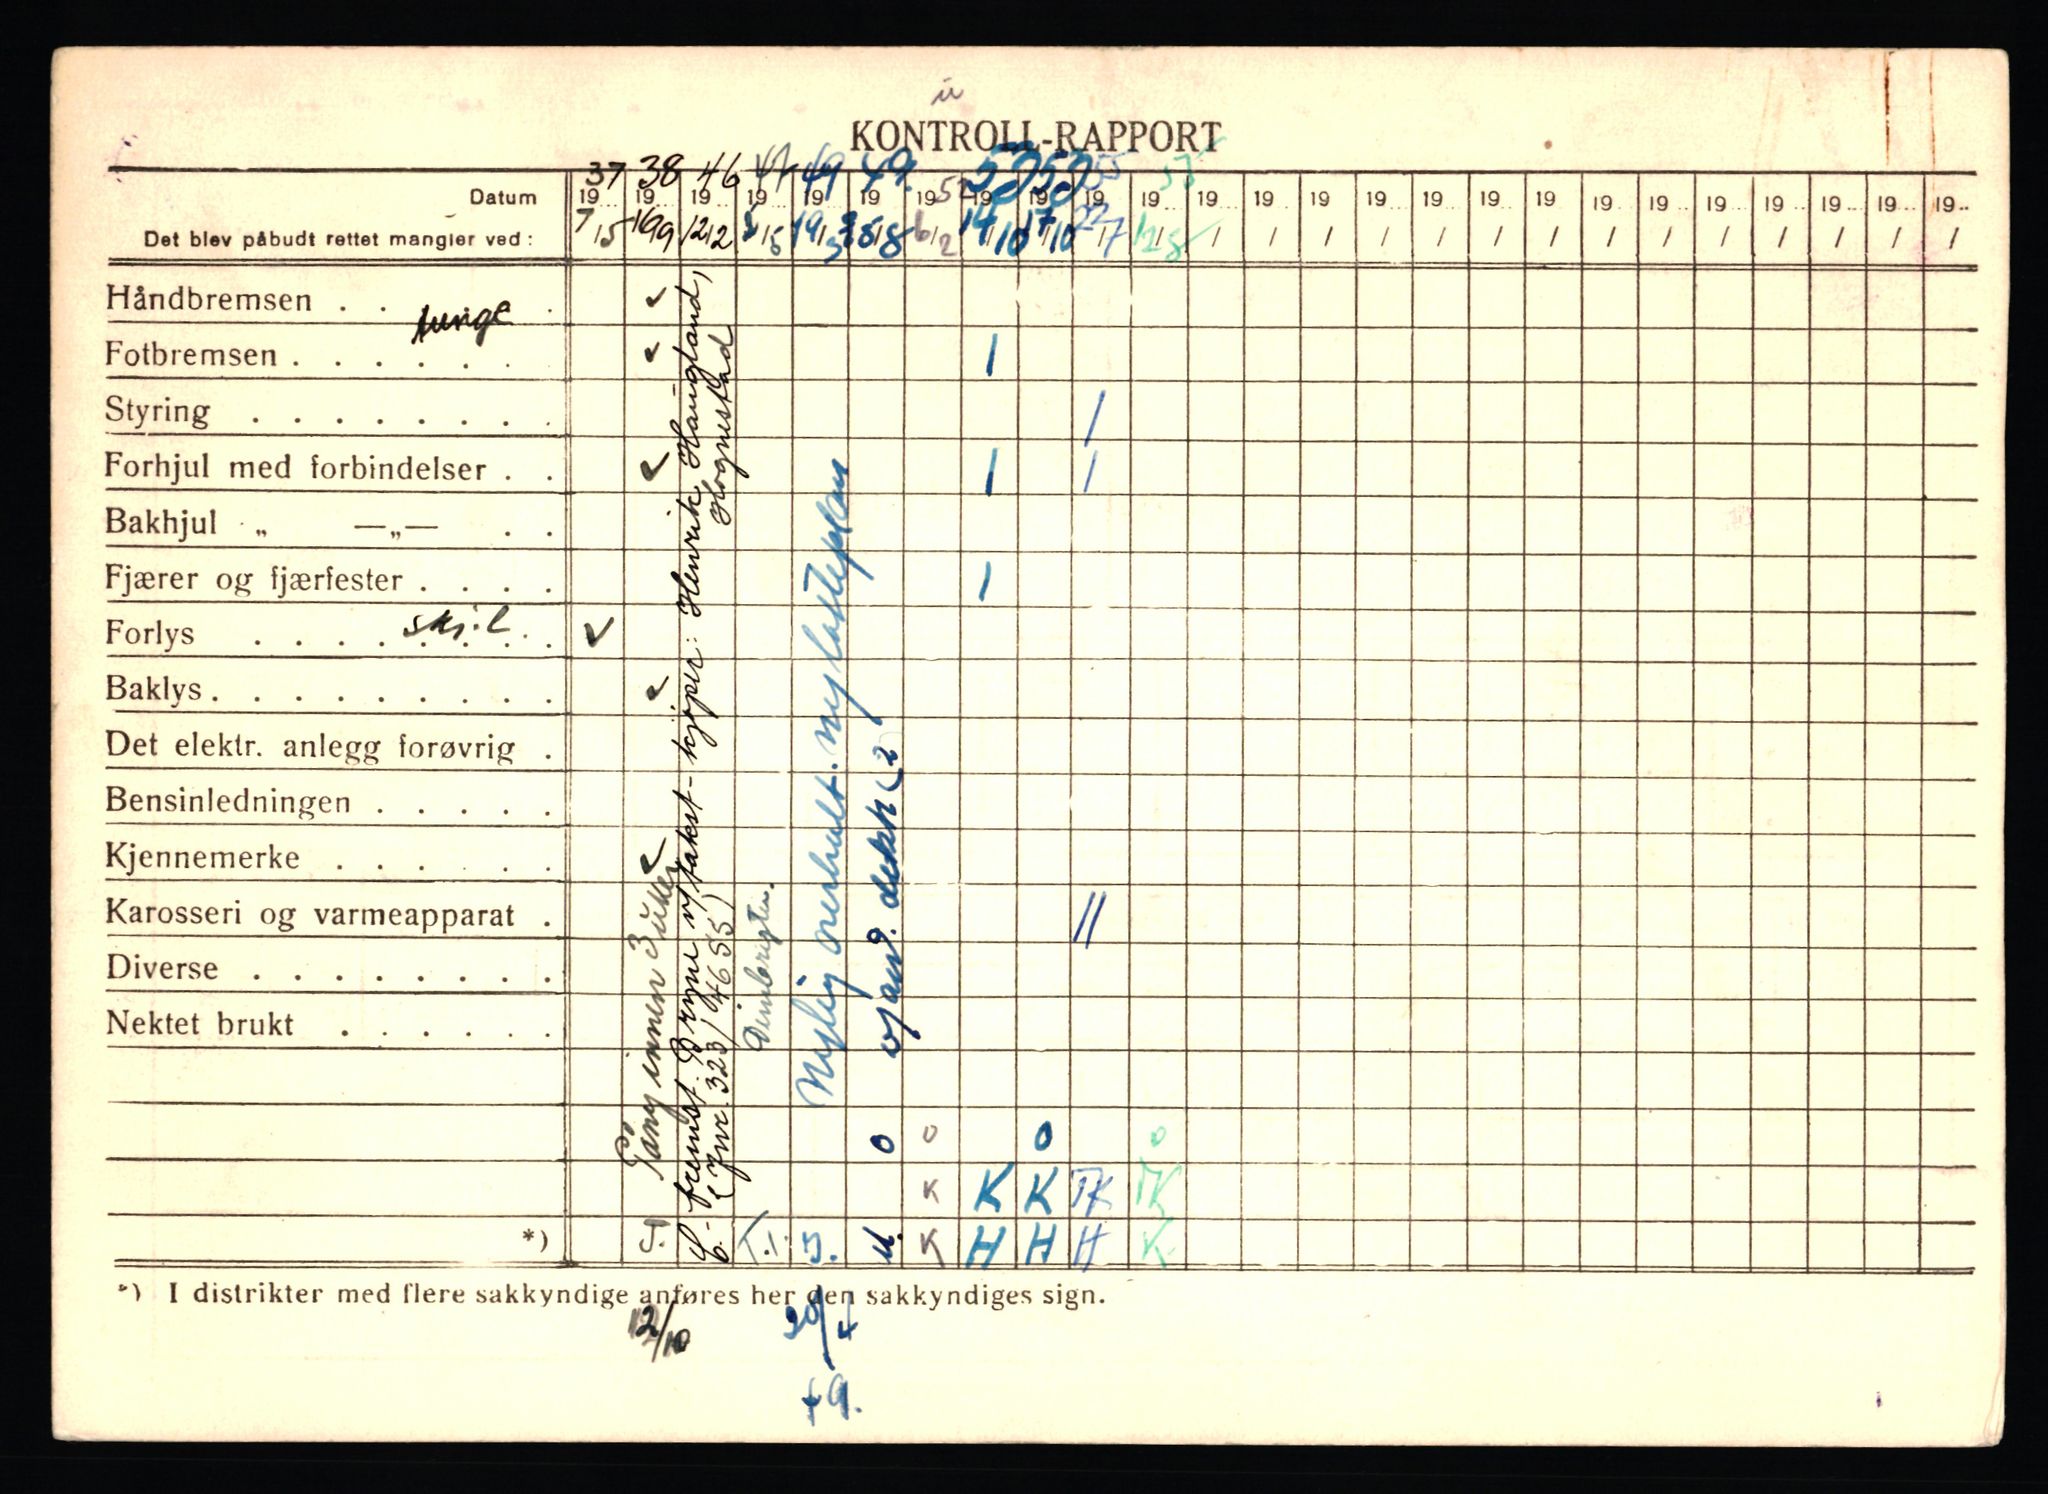 KONTROLL-RAPPORT
Datum 19 37 19 38 19 46 19 47 19 49 19 49. 19 52 19 53 19 53 19 55 19 55 19 19 19 19 19 19 19 19 19 19 19 19 19 19
Det blev påbudt rettet mangler ved: 7/5 19/9 12/2 /5 19/3 /8 6/2 14/10 17/10 27/7 12/8 / / / / / / / / / / / / / /
Håndbremsen . . . ✓
tunge
Fotbremsen . . . . . . ✓ /
Styring . . . . . . . . /
Forhjul med forbindelser . . ✓ / /
Bakhjul „ —„— . .
Fjærer og fjærfester . . . . /
Forlys . . . . skil . ✓
Baklys . . . . . . . . . ✓
Det elektr. anlegg forøvrig .
Bensinledningen . . . . .
Kjennemerke . . . . . ✓
Karosseri og varmeapparat . //
Diverse . . . . . . . .
Nektet brukt . . . . . .
innen 3 uker
fremst. Bryne v/takst - kjøper: Henrik Haugland,
Hognestad
(Jnr. 323/4655)
Nylig overhalt. ny lasteplan
v/ and. dekk (2
O O O O
K K K TK TK
*) T. J. K H H H K
*) I distrikter med flere sakkyndige anføres her den sakkyndiges sign.
12/10
30/4
49.